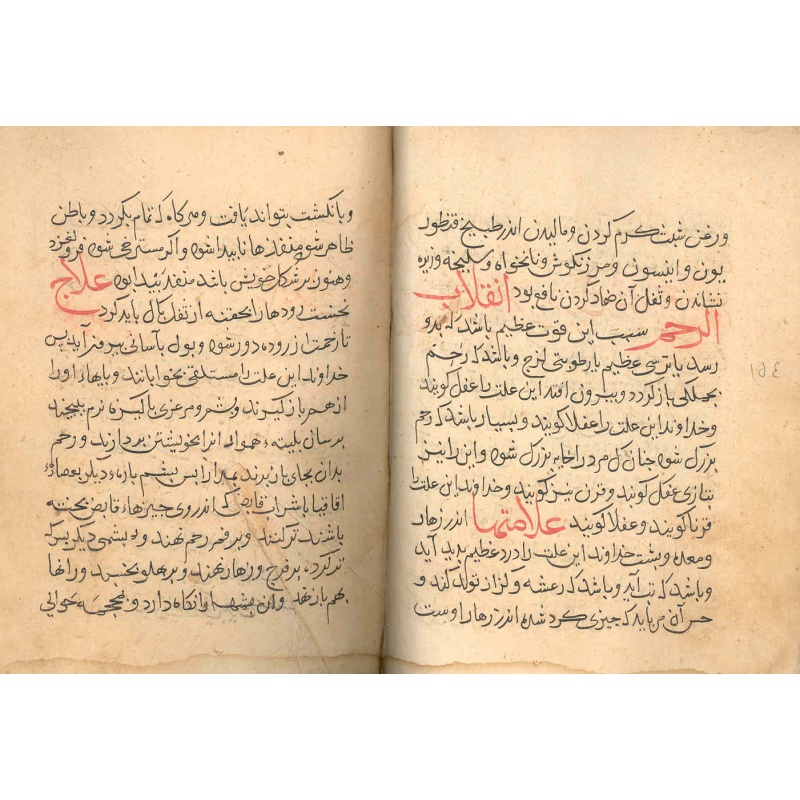 و رغن شبث کرم کردن و مالیدن اندر طبیخ قنطور
یون و اینسون و مرزنکوش و نانخواه و سلیخه و زیره
نشاندن و ثفل آن ضماد کردن نافع بود انقلاب
الرحم سبب این قوت عظیم باشد که بدو
رسد یا ترسی عظیم یا رطوبتی لزج و باشد که رحم
بجملکی باز کردد و بیرون افتد این علت را عفل کویند
و خداوند این علت را عفلا کویند و بسیار باشد که رحم
بزرک شود جنان که مرد را خایه بزرک شود و این را نیز
بتازی عفل کویند و قرن نیز کویند و خداوند این علت را
قرنا کویند و عفلا کویند علامتها اندر زهار
و معده و پشت خداوند این علت را درد عظیم بدید آید
و باشد که تب آید و باشد که رعشه و کزاز تولد کند و
حس آن می یابد که جیزی کرد شده اندر زهار اوست
و بانکشت بتواند یافت و هر کاه که تمام بکردد و باطن
ظاهر شود منفذها نابیدا شود و اکر مسترخی شود و فرو لغزد
و هنوز بر شکل خویش باشد منفذ بیدا بود علاج
نخست رودها را بحقنه از ثفل باک باید کرد
تا زحمت از روده دور شود و بول بآسانی بیرون آید بس
خداوند این علت را مستلقی بخوابانند و بایهاء او را
از هم باز کیرند و بشم مرعزی باکیزه نرم بیجیده
برسان بلیته همواره اندر خویشتن بردارند و رحم
بدان بجای باز برند بعد از بس بشم باره‌ء دیکر بعصاره‌ء
اقاقیا با شراب قابض که اندر وی جیزهاء قابض بخته
باشند تر کنند و بر فم رحم نهند و بشمی دیکر بسرکه
تر کرده بر فرج و زهار نهند و بر بهلو بخسبد و رانها
بهم باز نهد و آن بشمها را نکاه دارد و محجمه حوالی